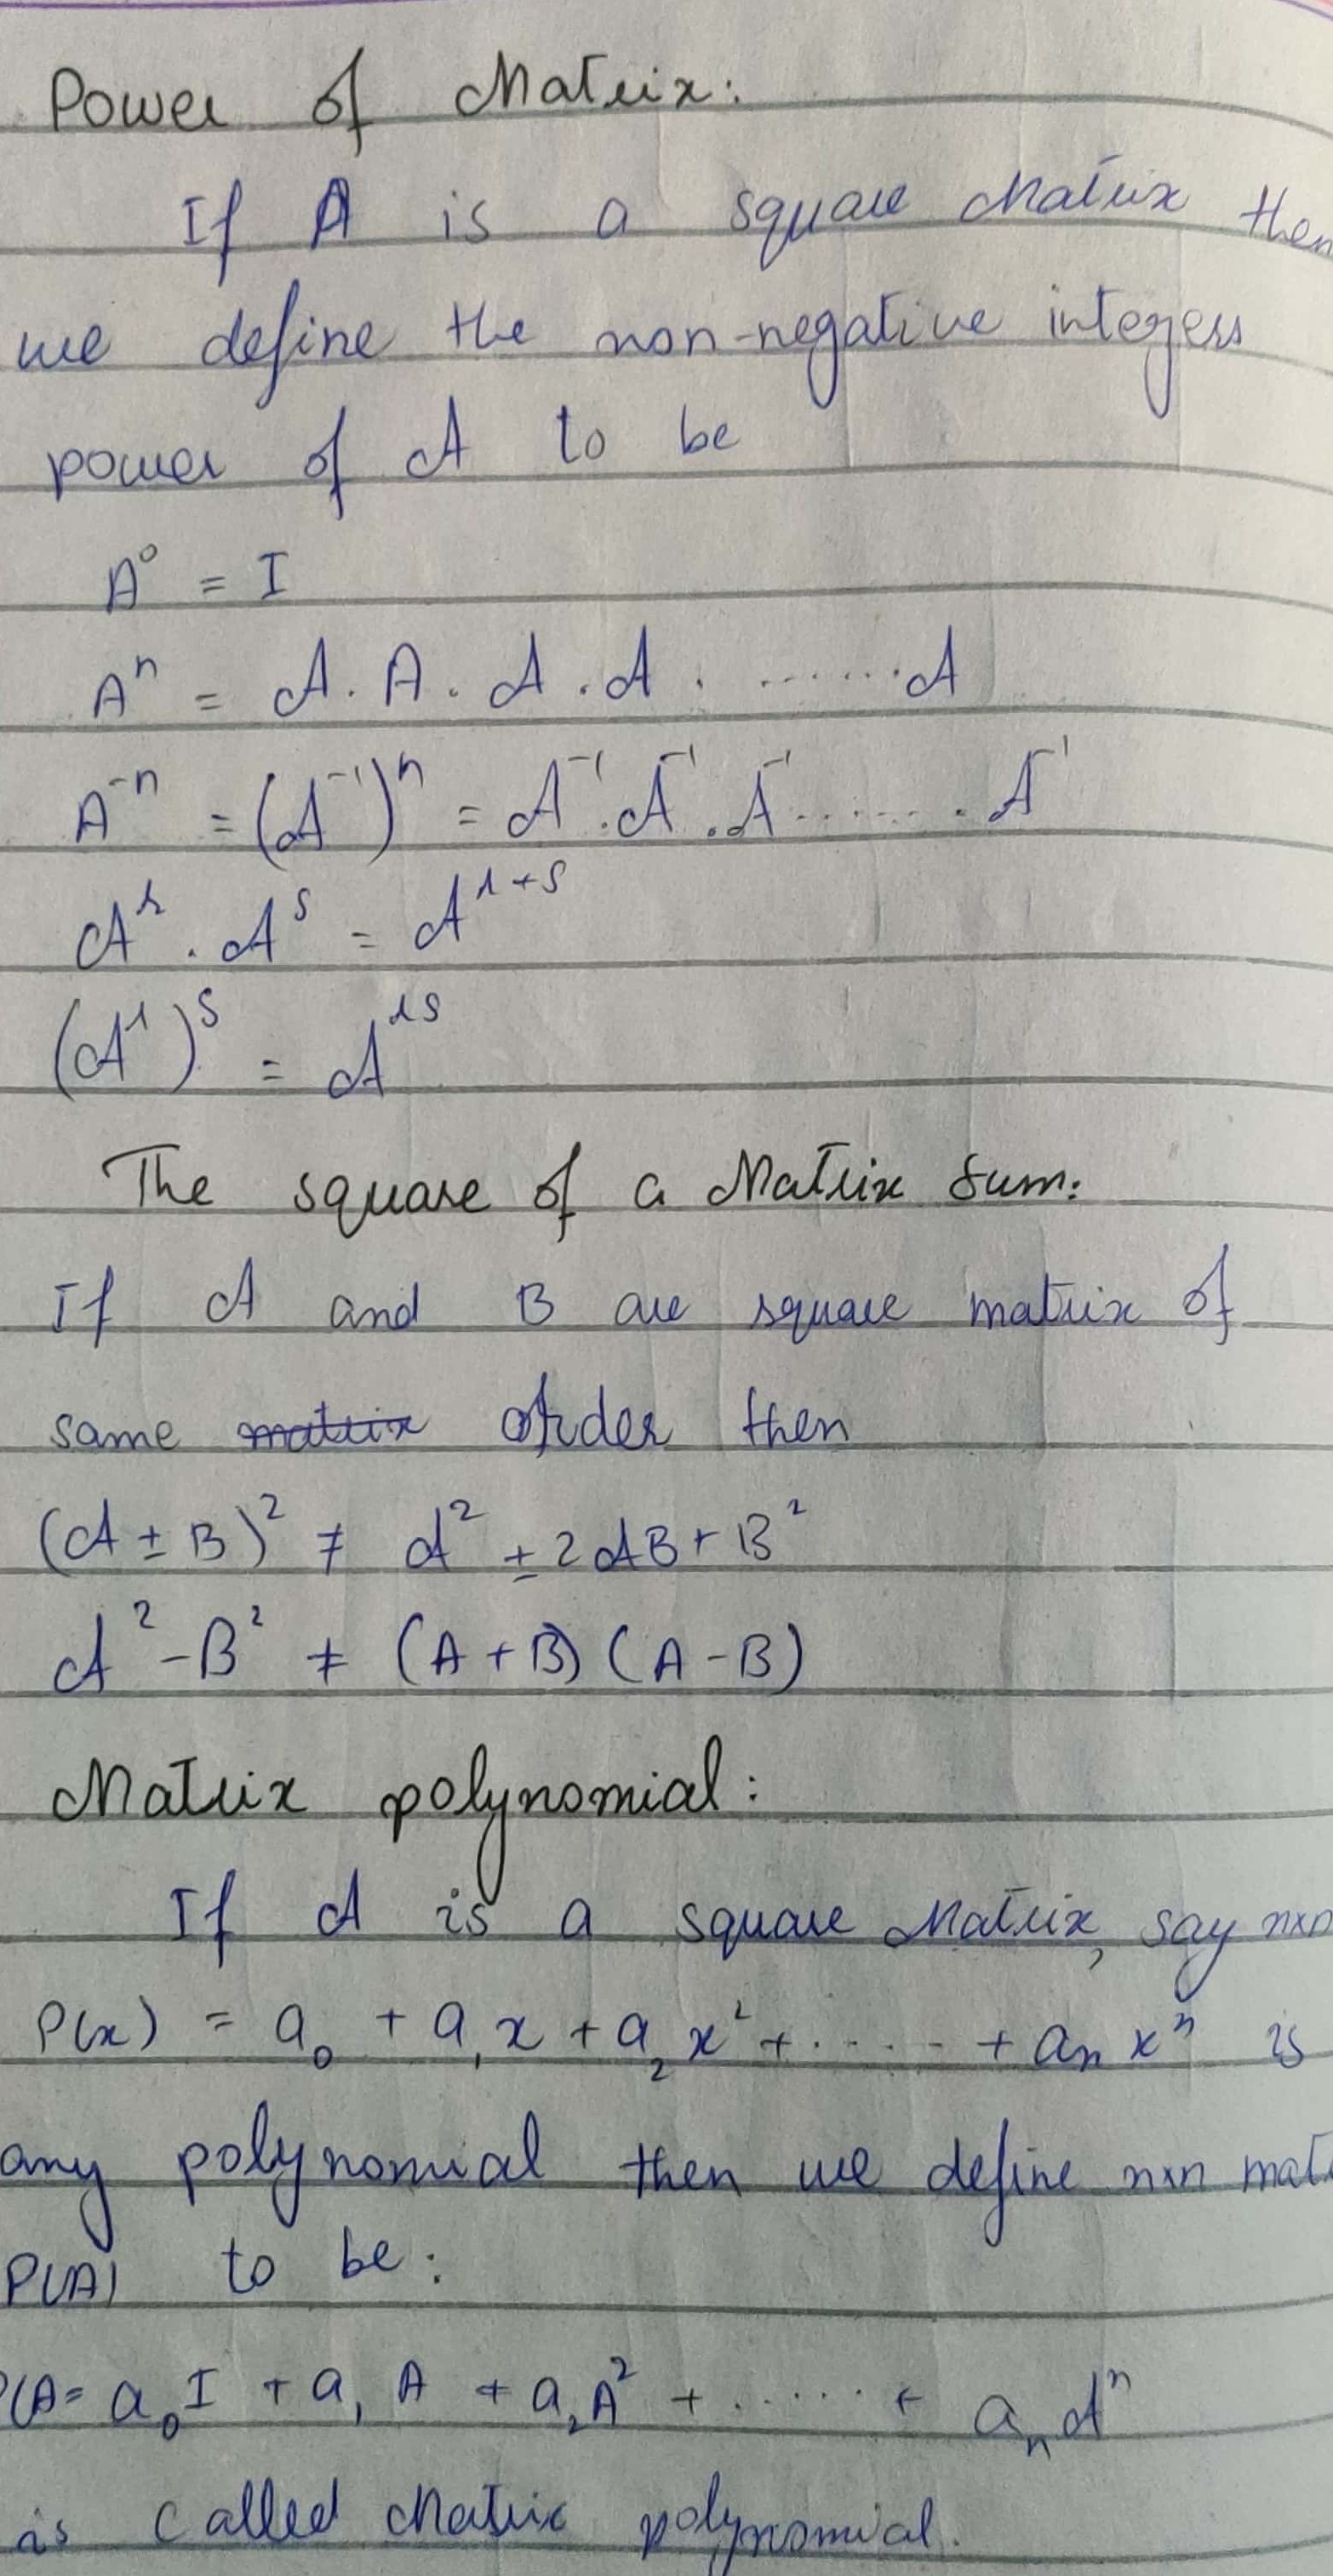 Power of Matrix:
If A is a square Matrix then
we define the non-negative integers
power of A to be
A⁰ = I
Aⁿ = A . A . A . A . ....... A
A⁻ⁿ = (A⁻¹)ⁿ = A⁻¹ . A⁻¹ . A⁻¹ ....... . A⁻¹
Aʳ . Aˢ = Aʳ⁺ˢ
(Aʳ)ˢ = Aʳˢ
The square of a Matrix Sum:
If A and B are square matrix of
same matrix order then
(A ± B)² ≠ A² ± 2AB + B²
A² - B² ≠ (A + B) (A - B)
Matrix polynomial:
If A is a square Matrix, say n×n
P(x) = a₀ + a₁x + a₂x² + ..... + aₙxⁿ is
any polynomial then we define n×n mat
P(A) to be:
P(A = a₀I + a₁A + a₂A² + ...... + aₙAⁿ
is called Matrix polynomial.